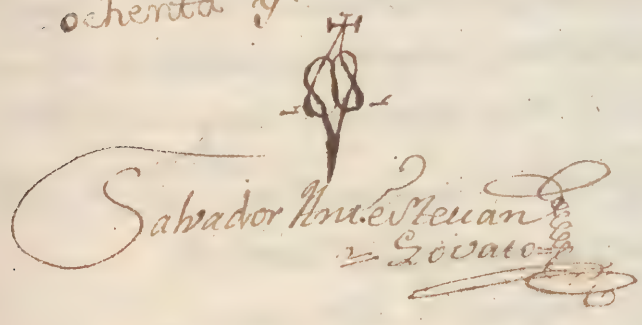 ochenta y
Salvador Ant.º estevan
y Lovato